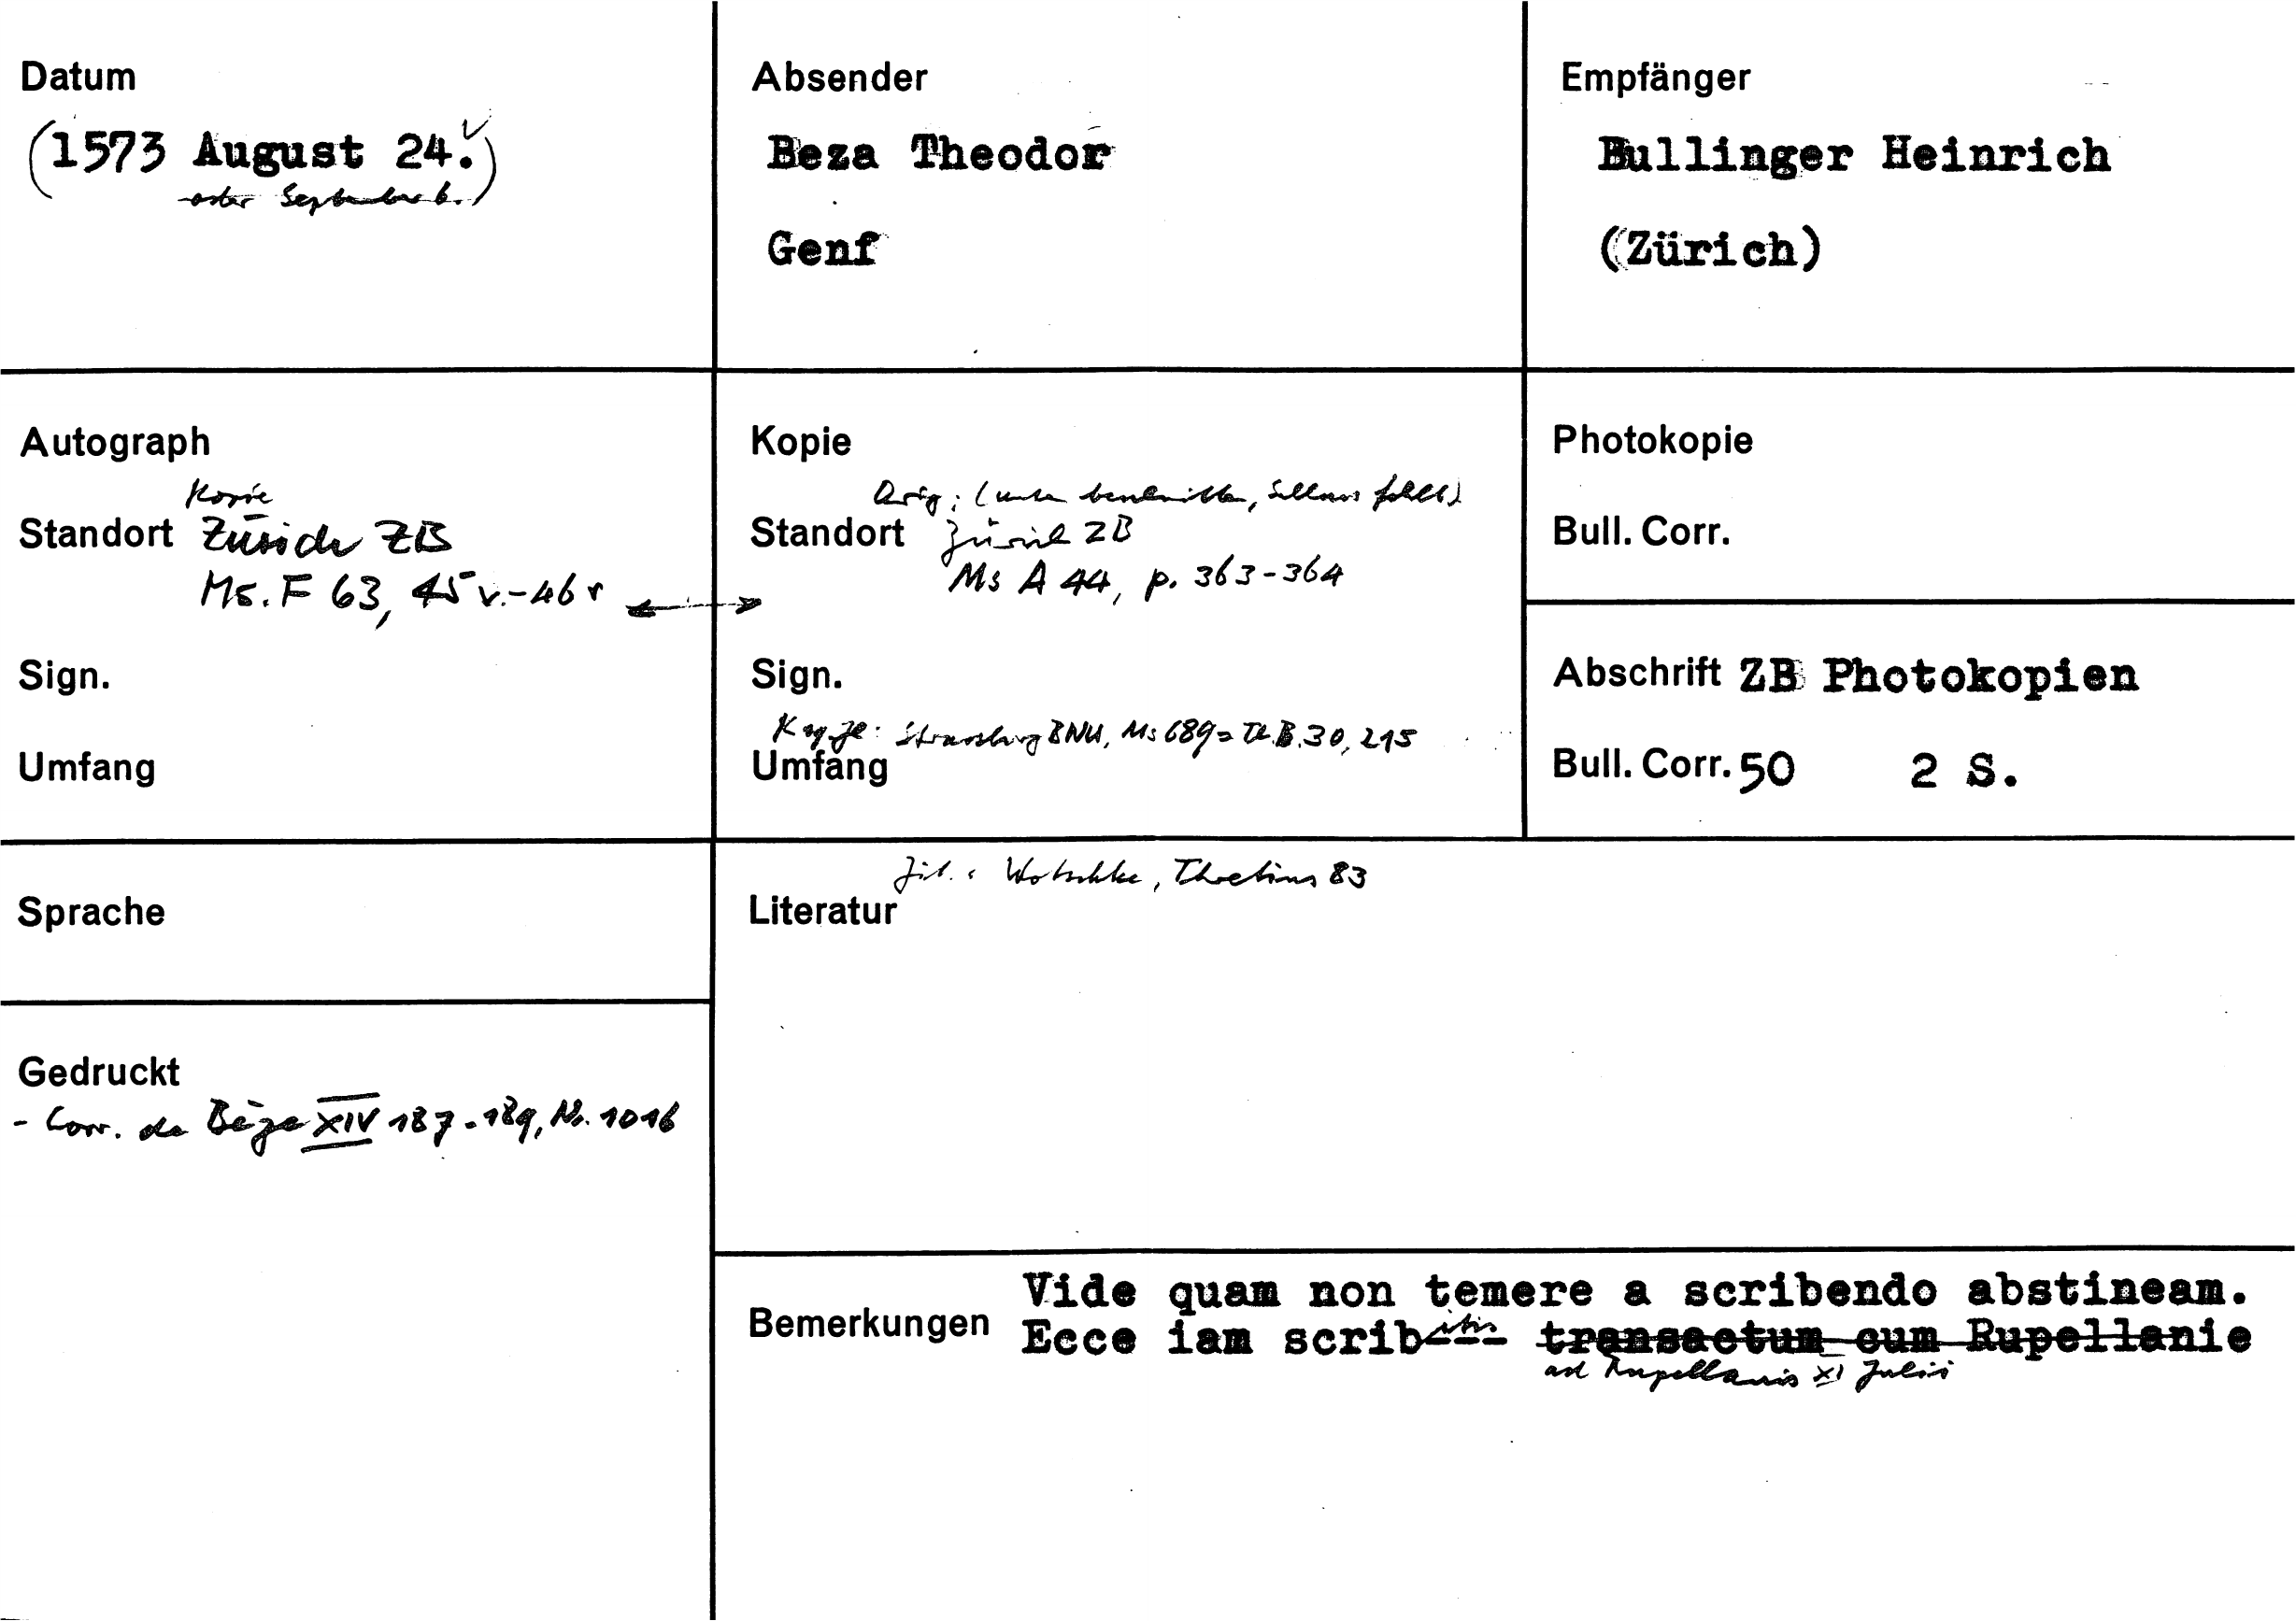 Datum
(1573 August 24.)
oder September 6.
Absender
Beza Theodor
Genf
Empfänger
Bullinger Heinrich
(Zürich)
Autograph
Kopie
Standort Zürich ZB
Ms. F 63, 45 v.-46 r
Sign.
Umfang
Kopie
Orig: (unten beschnitten, Schluss fehlt)
Standort Zürich ZB
Ms A 44, p. 363-364
Sign.
Strassburg BNU, Ms 689 = Th. B. 30, 215
Umfang
Photokopie
Bull. Corr.
Abschrift ZB Photokopien
Bull. Corr. 50 2 S.
Sprache
Gedruckt
- Corr. de Bèze XIV 187-189, Nr. 1016
Zit.: Wotschke, Thretius 83
Literatur
Bemerkungen
Vide quam non temere a scribendo abstineam.
Ecce iam scribitis transactum cum Rupellanie
ad Rupellanis XI Julii